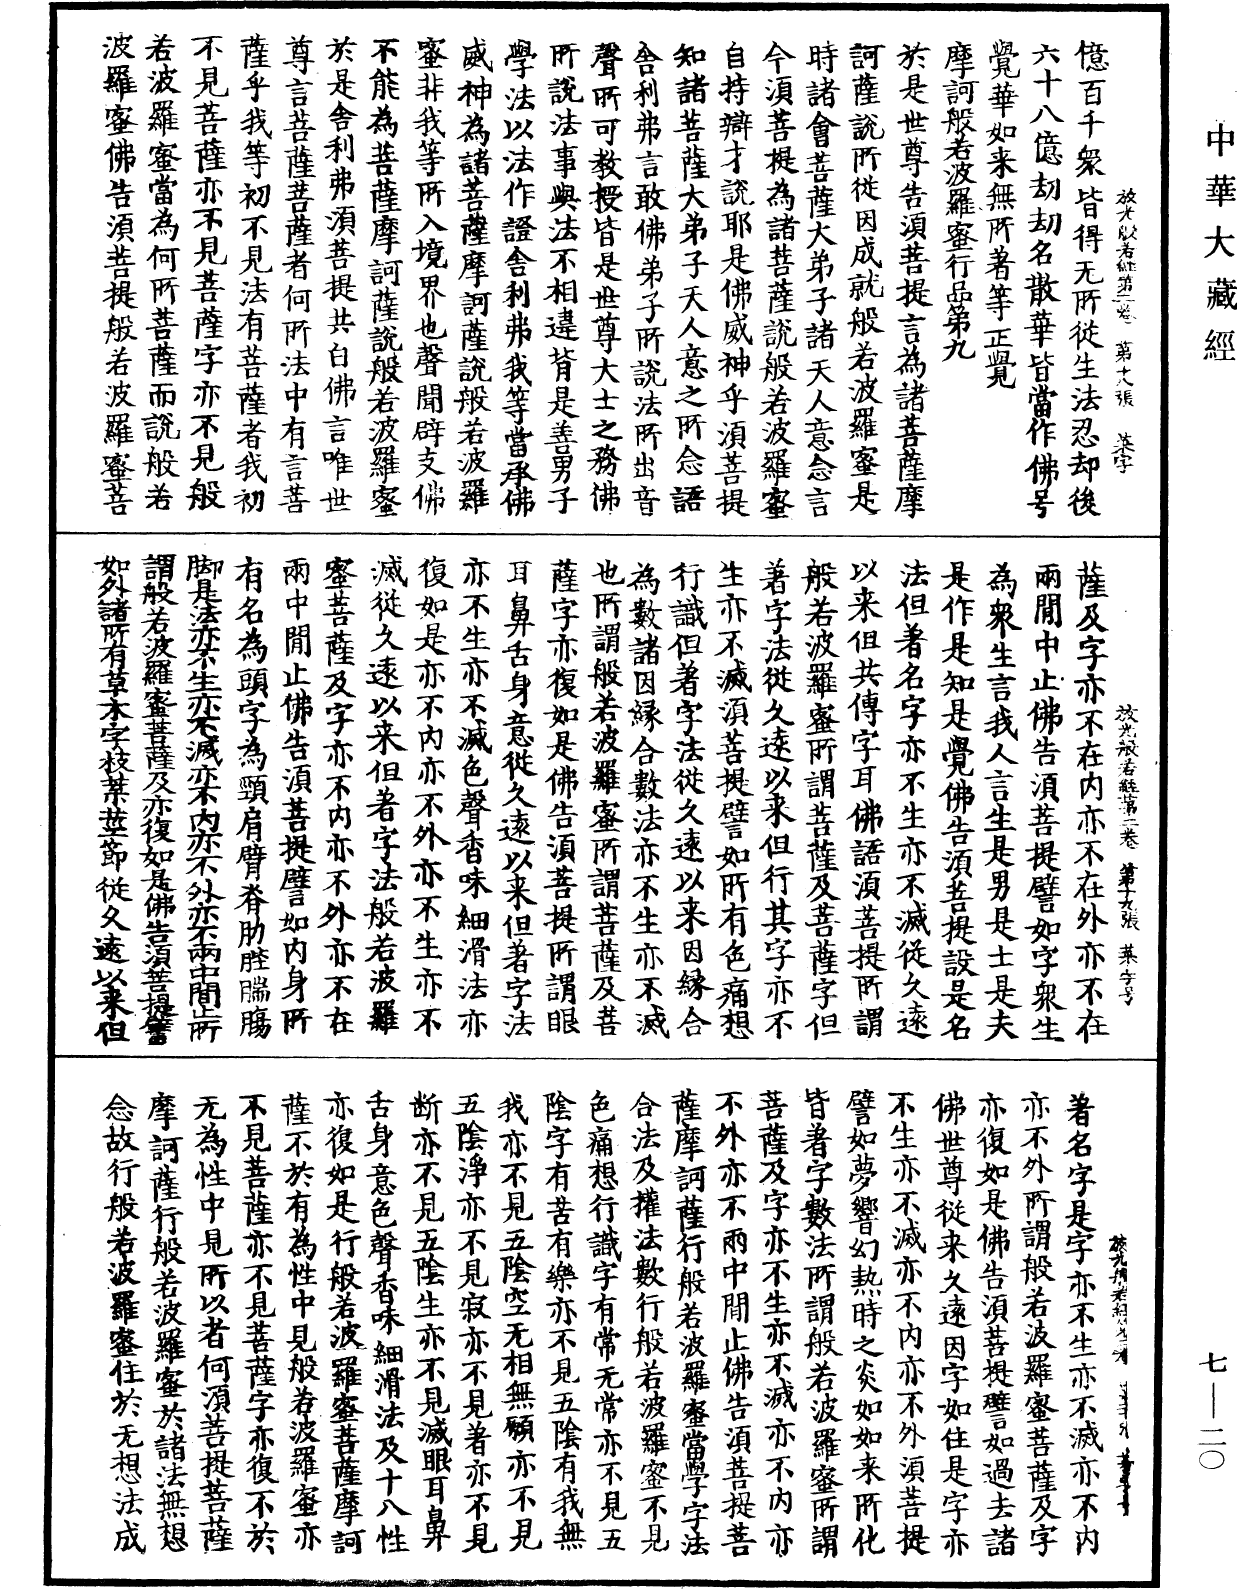 中華大藏經
放光般若經第二卷　第十八張　菜字
億百千衆皆得无所從生法忍却後
六十八億劫劫名散華皆當作佛号
覺華如来無所著等正覺
摩訶般若波羅蜜行品第九
於是世尊告須菩提言為諸菩薩摩
訶薩說所從因成就般若波羅蜜是
時諸會菩薩大弟子諸天人意念言
今須菩提為諸菩薩說般若波羅蜜
自持辯才說耶是佛威神乎須菩提
知諸菩薩大弟子天人意之所念語
舎利弗言敢佛弟子所說法所出音
聲所可教授皆是世尊大士之務佛
所說法事與法不相違背是善男子
學法以法作證舎利弗我等當承佛
威神為諸菩薩摩訶薩說般若波羅
蜜非我等所入境界也聲聞辟支佛
不能為菩薩摩訶薩說般若波羅蜜
於是舎利弗須菩提共白佛言唯世
尊言菩薩菩薩者何所法中有言菩
薩乎我等初不見法有菩薩者我初
不見菩薩亦不見菩薩字亦不見般
若波羅蜜當為何所菩薩而說般若
波羅蜜佛告須菩提般若波羅蜜菩
放光般若經第二卷　第十九張　菜字号
薩及字亦不在内亦不在外亦不在
兩閒中止佛告須菩提譬如字衆生
為衆生言我人言生是男是士是夫
是作是知是覺佛告須菩提設是名
法但著名字亦不生亦不滅從久遠
以来但共傳字耳佛語須菩提所謂
般若波羅蜜所謂菩薩及菩薩字但
著字法從久遠以来但行其字亦不
生亦不滅須菩提譬如所有色痛想
行識但著字法從久遠以来因緣合
為數諸因緣合數法亦不生亦不滅
也所謂般若波羅蜜所謂菩薩及菩
薩字亦復如是佛告須菩提所謂眼
耳鼻舌身意從久遠以来但著字法
亦不生亦不滅色聲香味細滑法亦
復如是亦不内亦不外亦不生亦不
滅從久遠以来但著字法般若波羅
蜜菩薩及字亦不内亦不外亦不在
兩中閒止佛告須菩提譬如内身所
有名為頭字為頸肩臂脊肋髀腨膓
脚是法亦不生亦不滅亦不内亦不外亦不兩中閒止所
謂般若波羅蜜菩薩及亦復如是佛告須菩提譬
如外諸所有草木字枝葉莖節從久遠以来但
著名字是字亦不生亦不滅亦不内
亦不外所謂般若波羅蜜菩薩及字
亦復如是佛告須菩提譬如過去諸
佛世尊從来久遠因字如住是字亦
不生亦不滅亦不内亦不外須菩提
譬如夢響幻熱時之炎如如来所化
皆著字數法所謂般若波羅蜜所謂
菩薩及字亦不生亦不滅亦不内亦
不外亦不兩中閒止佛告須菩提菩
薩摩訶薩行般若波羅蜜當學字法
合法及權法數行般若波羅蜜不見
色痛想行識字有常无常亦不見五
陰字有苦有樂亦不見五陰有我無
我亦不見五陰空无相無願亦不見
五陰淨亦不見寂亦不見著亦不見
断亦不見五陰生亦不見滅眼耳鼻
舌身意色聲香味細滑法及十八性
亦復如是行般若波羅蜜菩薩摩訶
薩不於有為性中見般若波羅蜜亦
不見菩薩亦不見菩薩字亦復不於
无為性中見所以者何須菩提菩薩
摩訶薩行般若波羅蜜於諸法無想
念故行般若波羅蜜住於无想法成
七—二〇